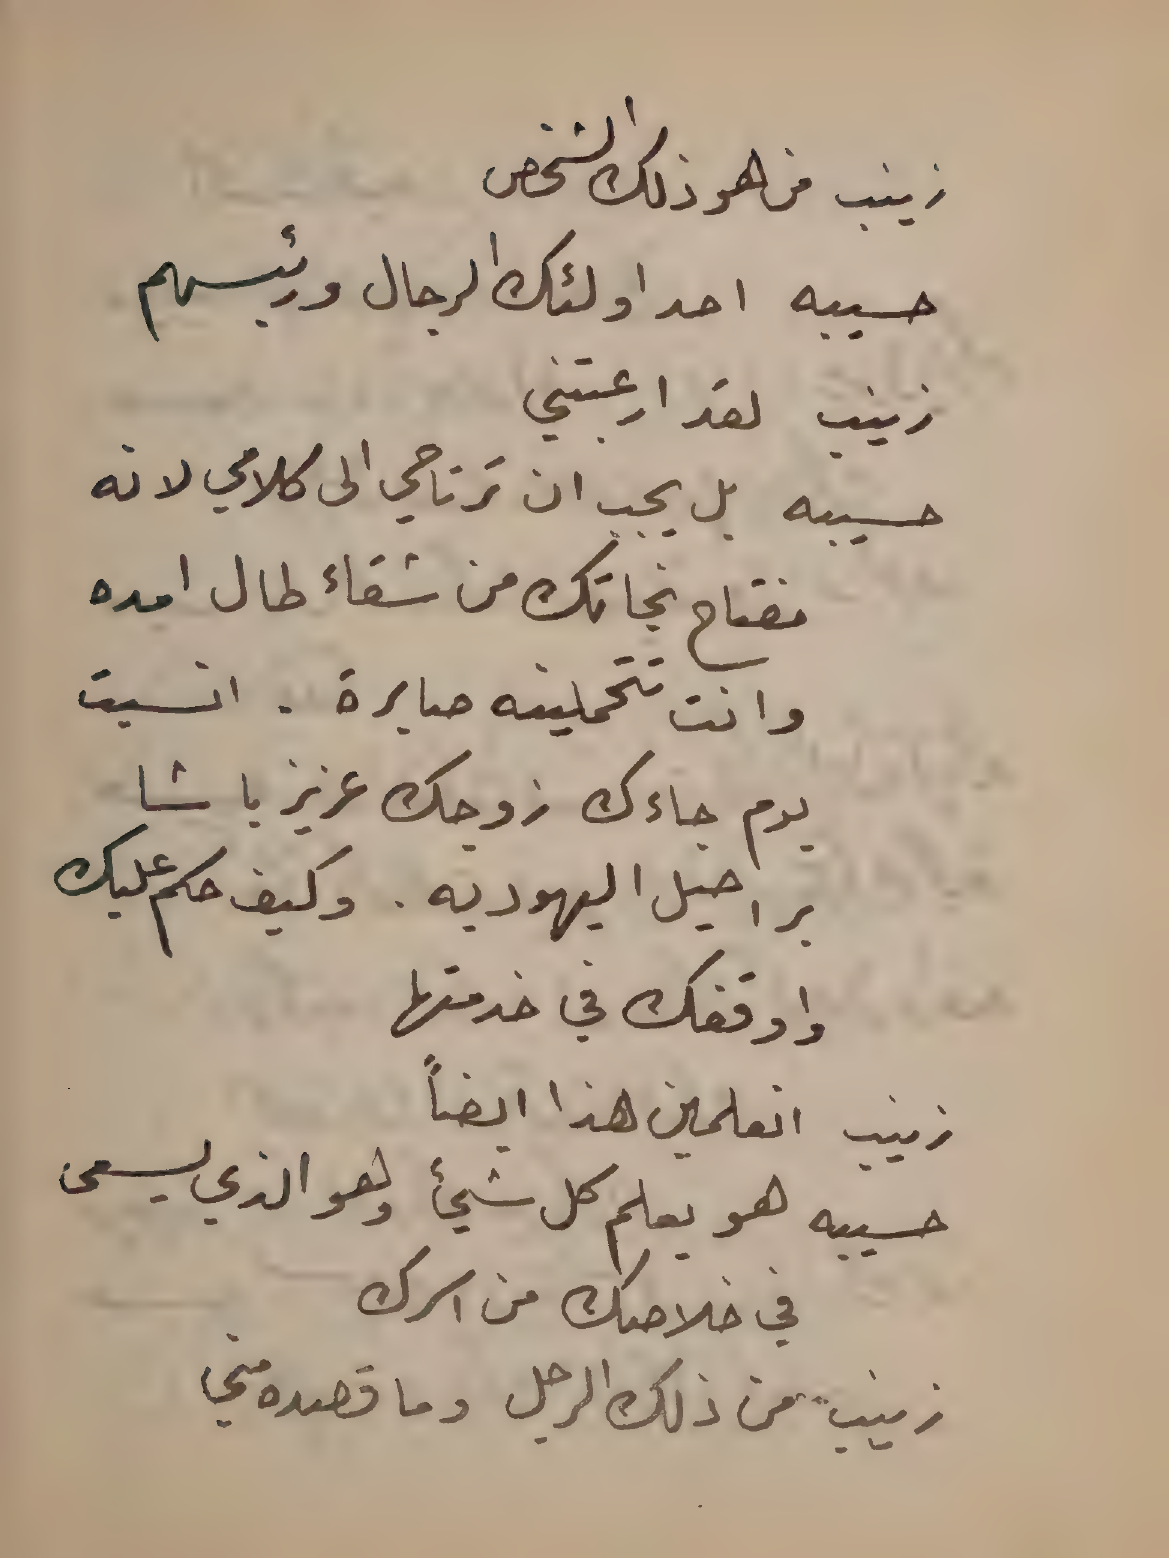 زينب من هو ذلك الشخص
حسيبه احد اولئك الرجال ورئيسهم
زينب لقد ارعبتني
حسيبه بل يجب ان ترتاحي الى كلامي لانه
مفتاح نجاتك من شقاء طال امده
وانت تتحملينه صابرة . انسيت
يوم جاءك زوجك عزيز باشا
براحيل اليهوديه . وكيف حكم عليك
واوقفك في خدمتها
زينب اتعلمين هذا ايضاً
حسيبه هو يعلم كل شيئ وهو الذي يسعى
في خلاصك من اسرك
زينب من ذلك الرجل وما قصده مني